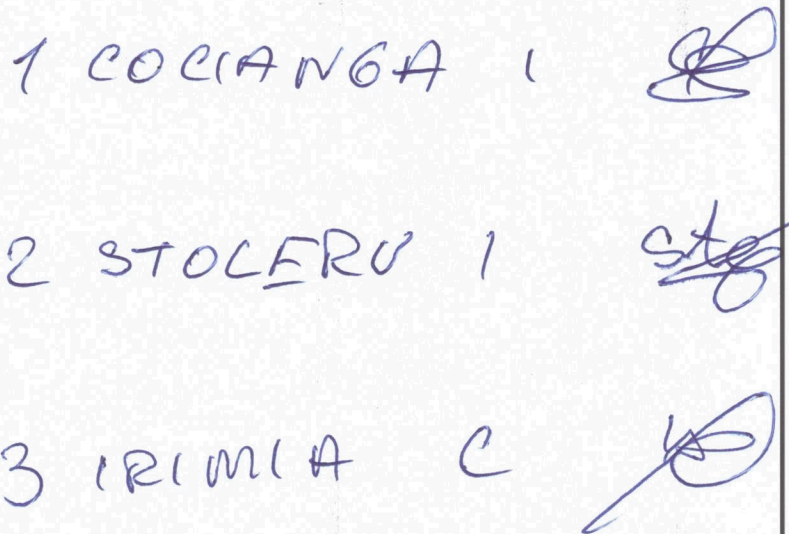 1 COCIANGA I
2 STOCERU I
3 IRIMIA C